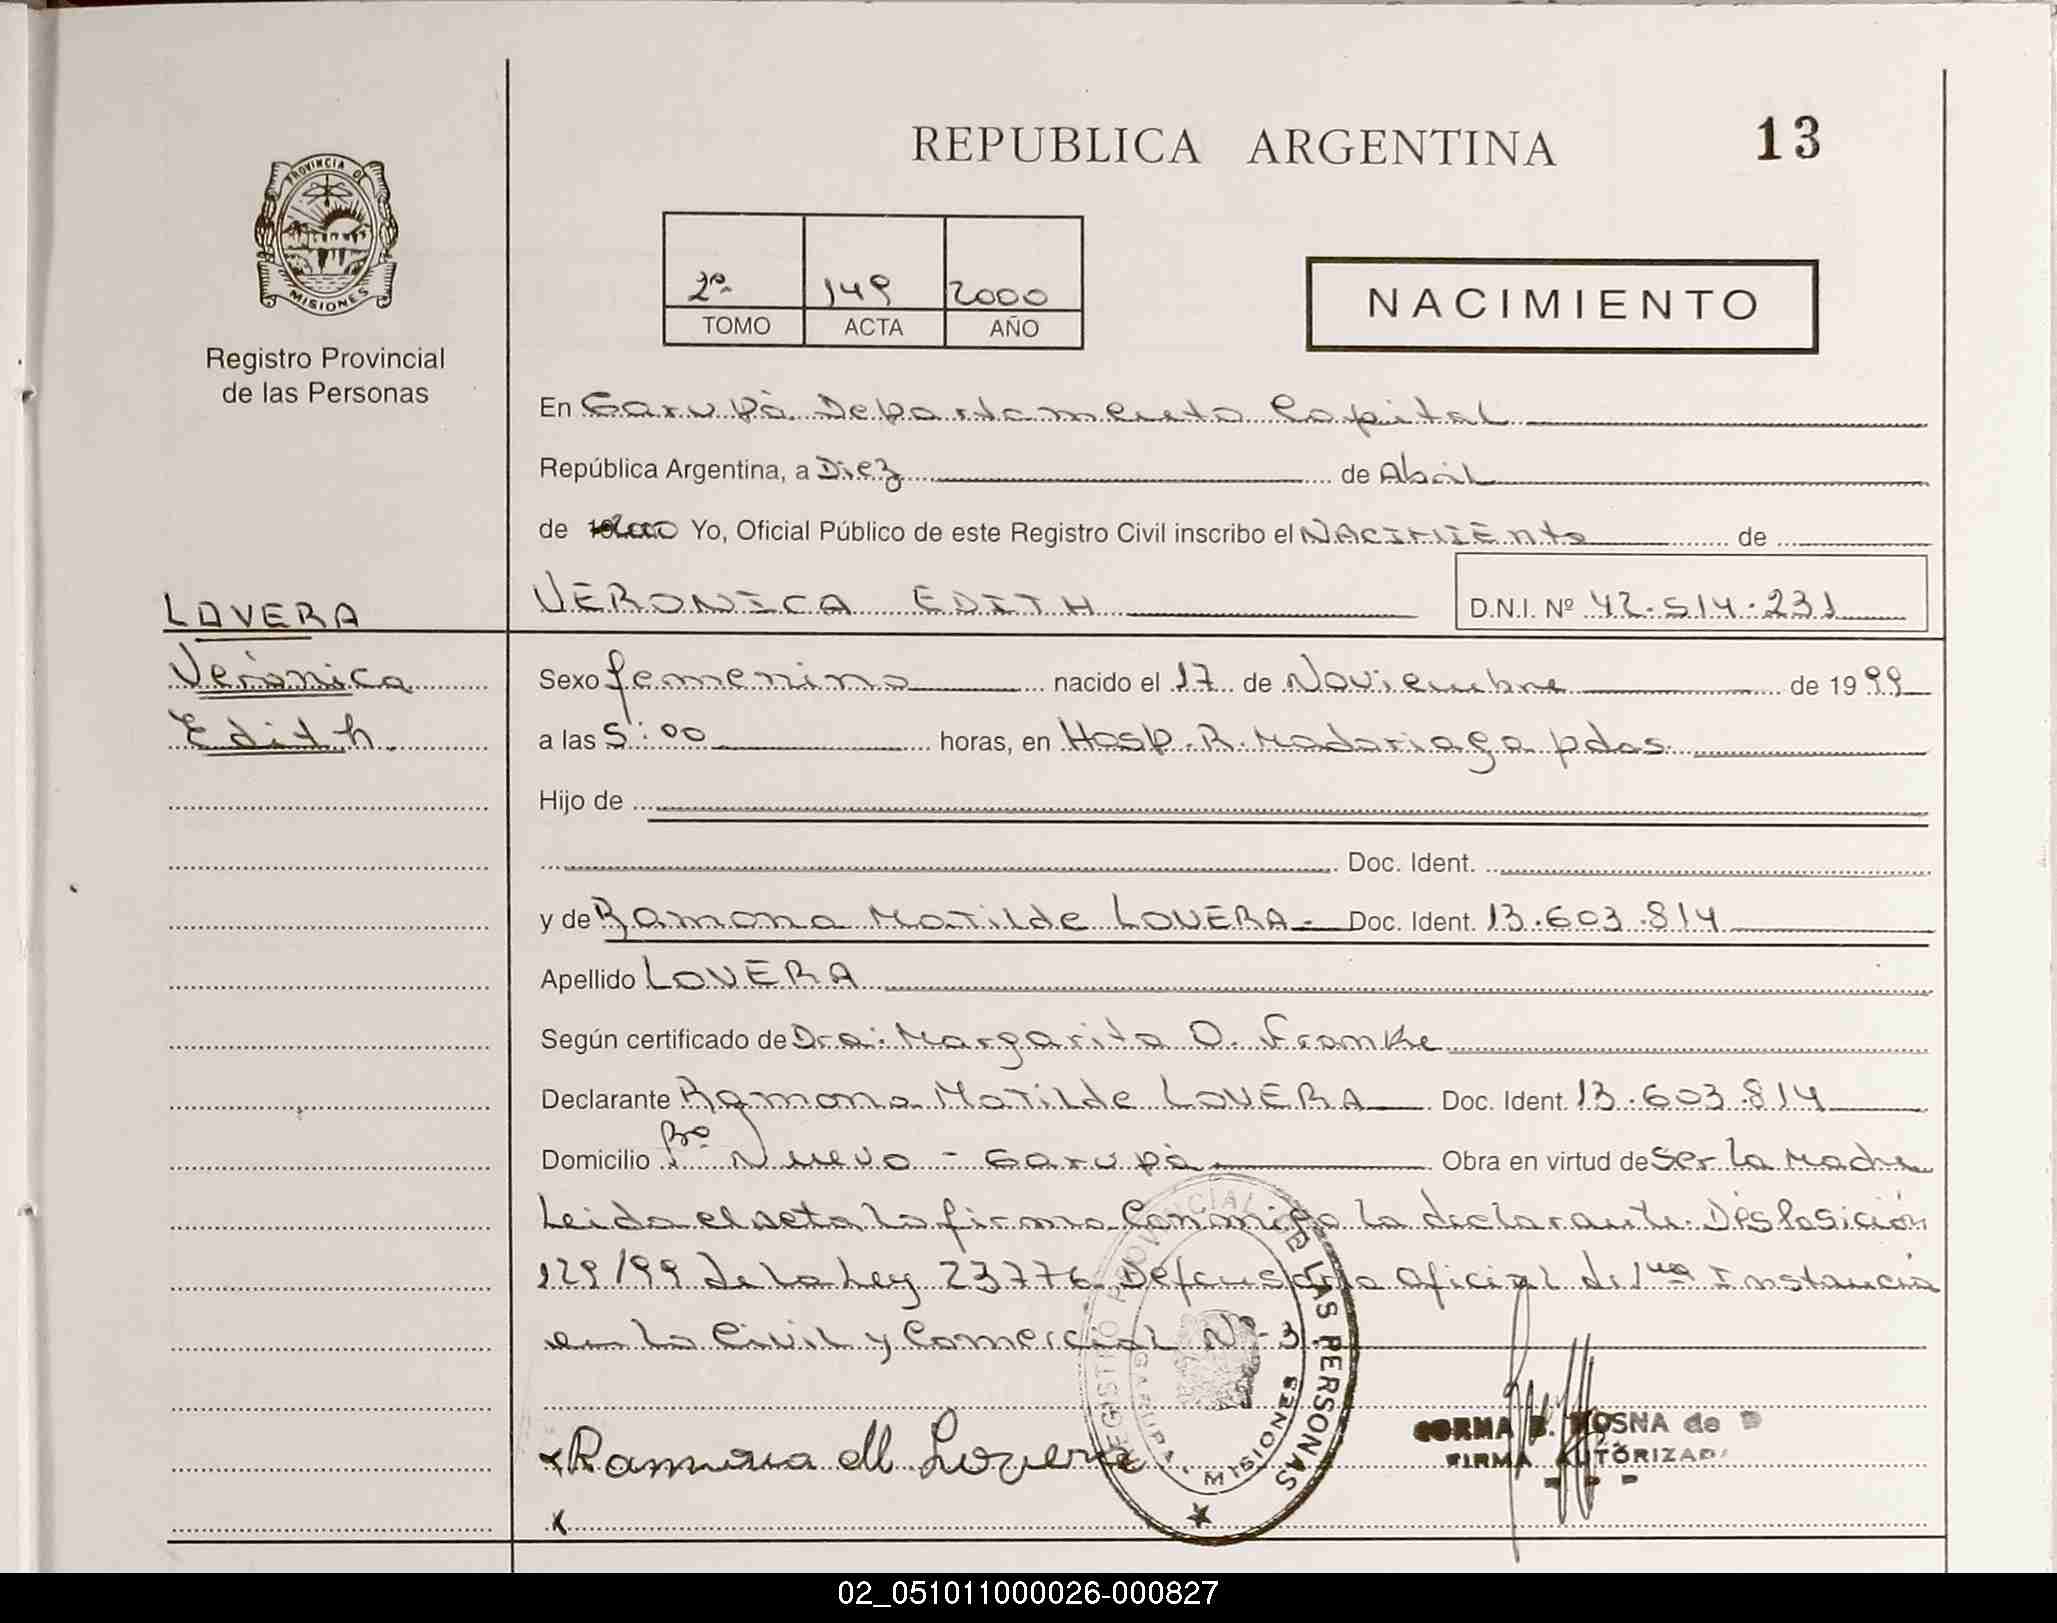 REPUBLICA ARGENTINA
13
PROVINCIA DE
MISIONES
Registro Provincial
de las Personas
2º 149 2000
TOMO ACTA AÑO
NACIMIENTO
En Garupà Departamento Capital
República Argentina, a Diez de Abril
de 2000 Yo, Oficial Público de este Registro Civil inscribo el NACIMIENto de
LOVERA
VERONICA EDITH D.N.I. Nº 42.514.231
Verónica
Edith
Sexo femenino nacido el 17 de Noviembre de 1999
a las 5:00 horas, en Hosp. R. Madariaga pdas.
Hijo de
Doc. Ident.
y de Ramona Matilde LOVERA - Doc. Ident. 13.603.814
Apellido LOVERA
Según certificado de Dra: Margarita O. Franke
Declarante Ramona Matilde LOVERA Doc. Ident. 13.603.814
Domicilio Bº Nuevo - Garupà Obra en virtud de ser la Madre
Leida el acta la firma Conmigo la declarante. Disposición
129/99 de la Ley 23776 Defensoria Oficial de 1ra Instancia
en lo Civil y Comercial Nº 3
Ramona M Lovera
REGISTRO PROVINCIAL DE LAS PERSONAS
GARUPA, MISIONES
B. HOSNA de
FIRMA AUTORIZADA
02_051011000026-000827